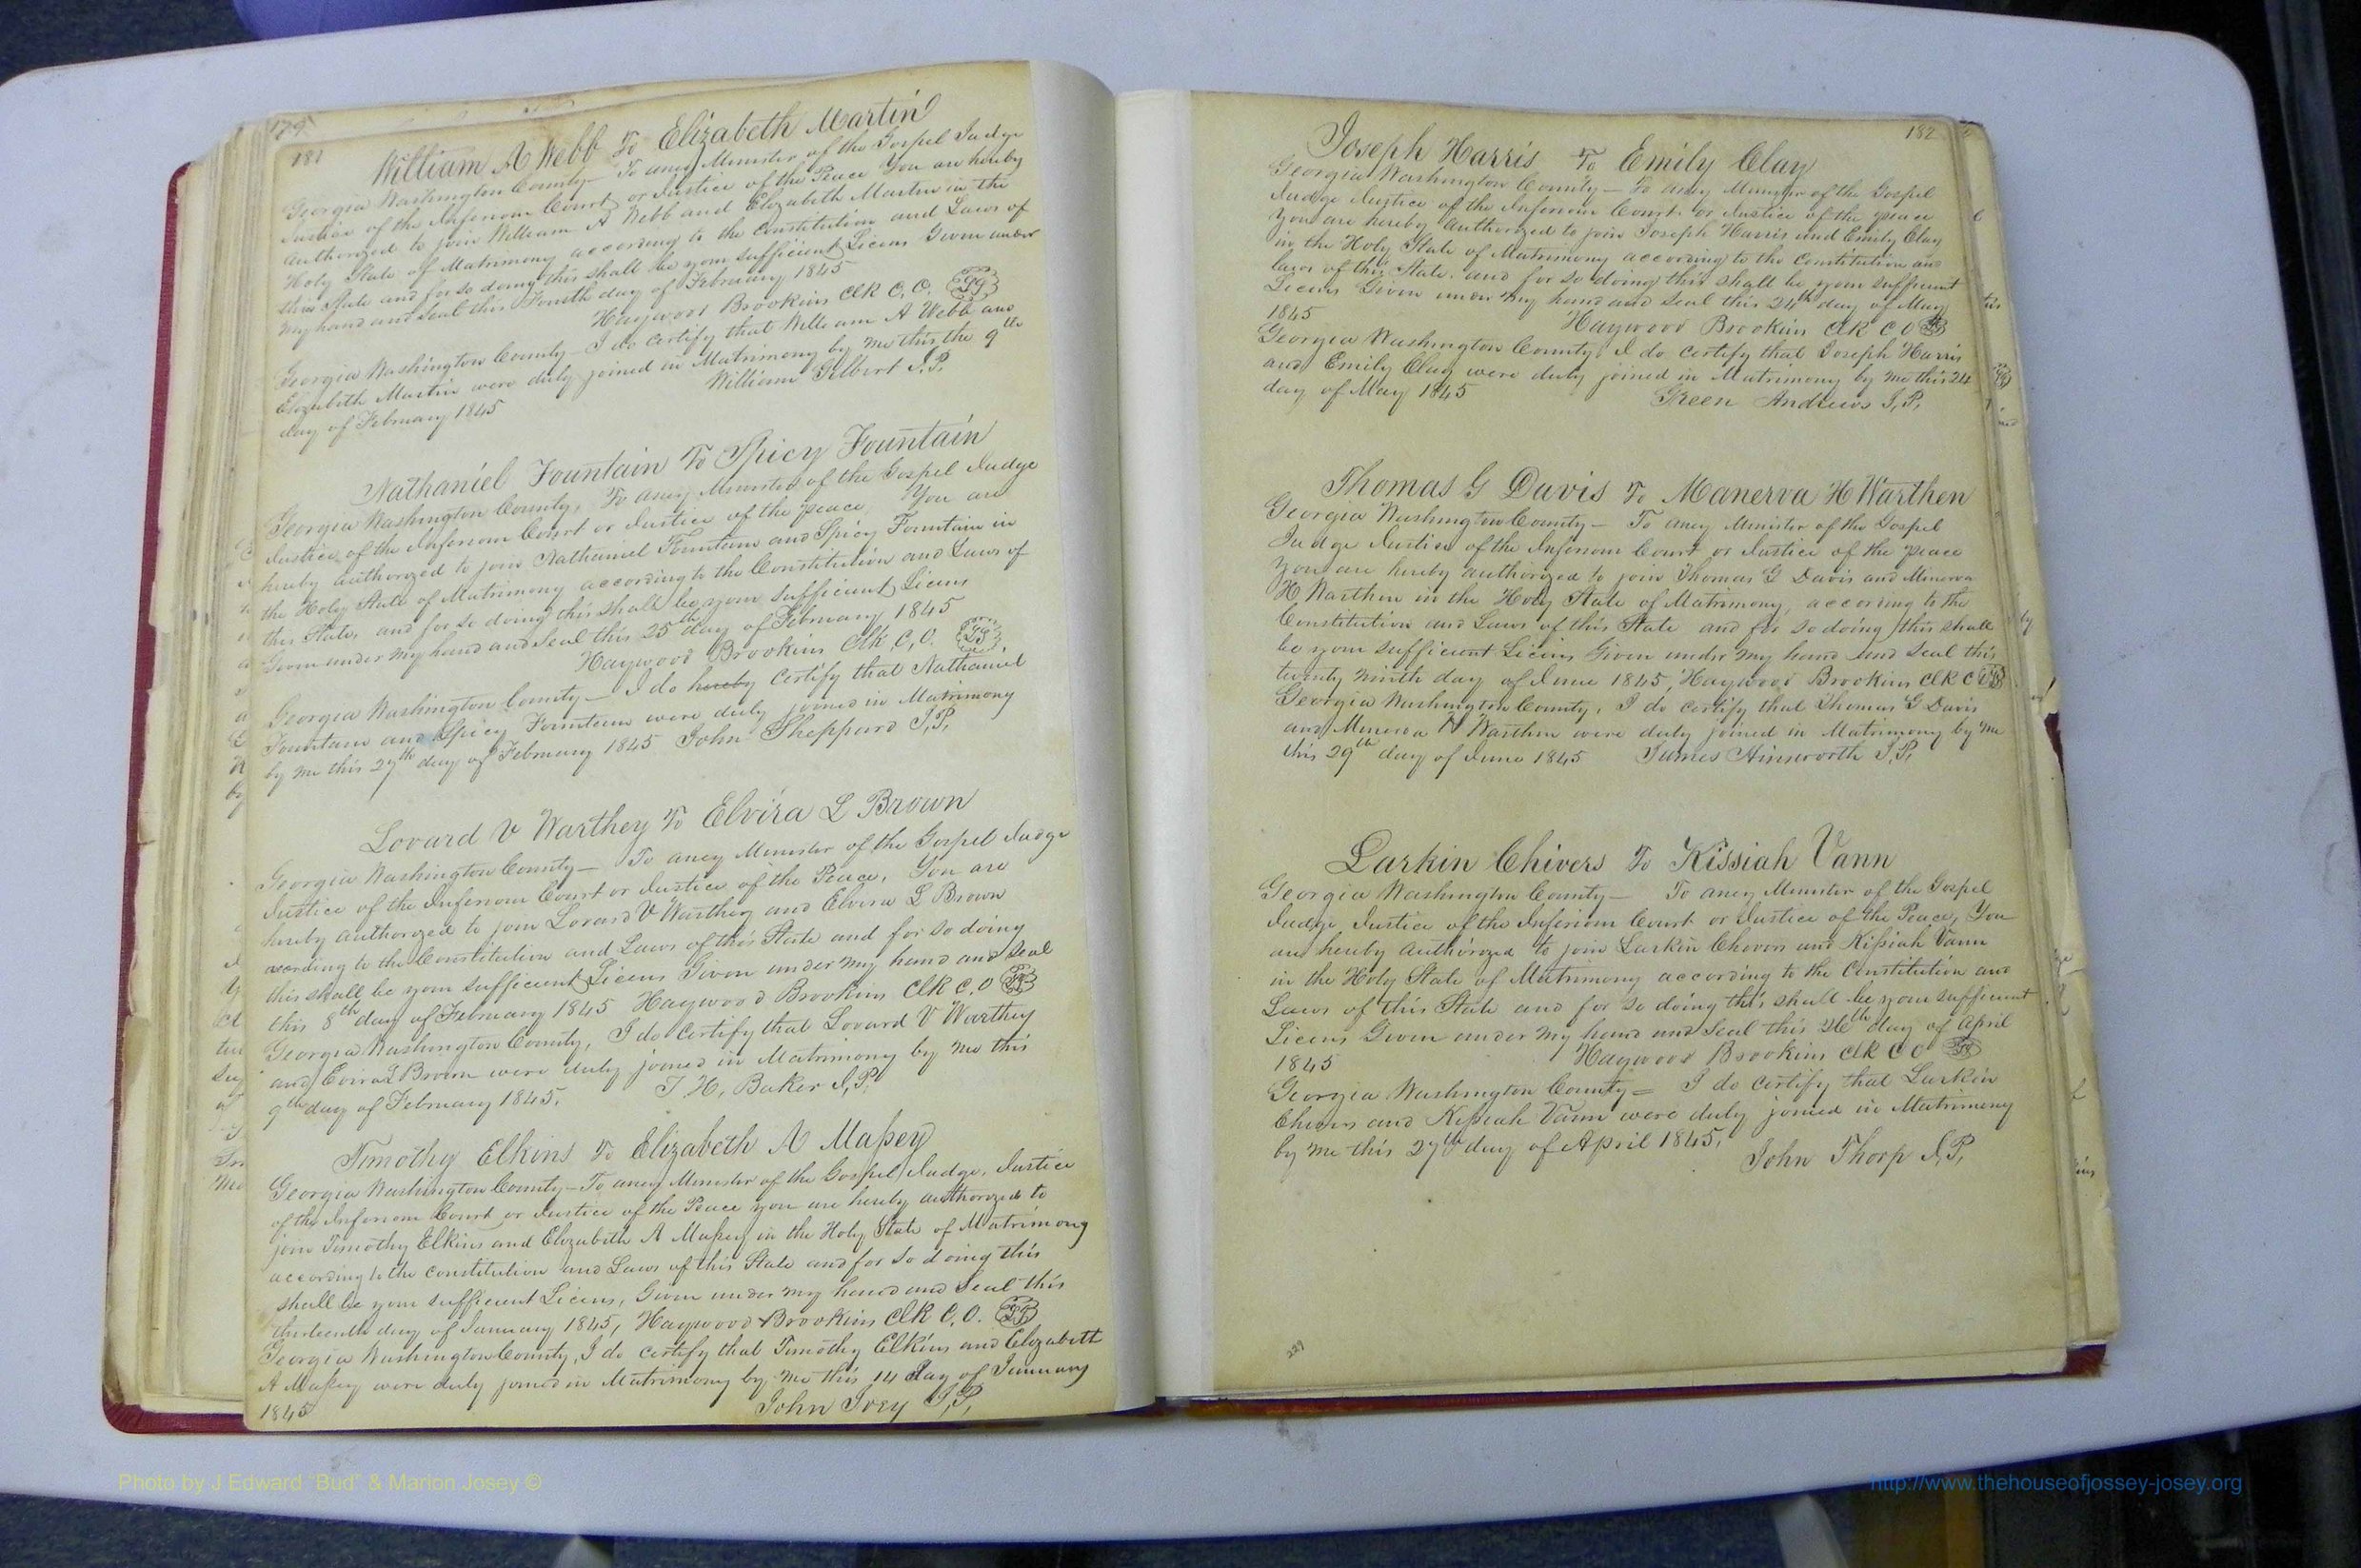 179
181
William A Webb To Elizabeth Martin
Georgia Washington County – To aney Minister of the Gospel Judge
Justice of the Inferiour Court or Justice of the Peace You are hereby
authorized to join William A Webb and Elizabeth Martin in the
Holy State of Matrimony according to the Constitution and Laws of
this State and for so doing this shall be your sufficient Licens Given under
my hand and Seal this Fourth day of February 1845
Haywood Brookins Clk C.O.
Georgia Washington County – I do certify that William A Webb and
Elizabeth Martin were duly joined in Matrimony by me this the 9th
day of February 1845
William Gilbert J.P.
Nathaniel Fountain To Spicy Fountain
Georgia Washington County, To aney Minister of the Gospel Judge
Justice of the Inferiour Court or Justice of the peace You are
hereby authorized to join Nathaniel Fountain and Spicy Fountain in
the Holy State of Matrimony according to the Constitution and Laws of
this State, and for so doing this shall be your sufficient Licens
Given under my hand and Seal this 25th day of February 1845
Haywood Brookins Clk C,O.
Georgia Washington County – I do hereby certify that Nathaniel
Fountain and Spicy Fountain were duly joined in Matrimony
by me this 27th day of February 1845 John Sheppard J,P,
Lovard V Warthey To Elvira L Brown
Georgia Washington County – To aney Minister of the Gospel Judge
Justice of the Inferiour Court or Justice of the Peace, You are
hereby authorized to join Lovard V Warthey and Elvira L Brown
according to the Constitution and Laws of this State and for so doing
this shall be your sufficient Licens Given under my hand and Seal
this 8th day of February 1845 Haywood Brookins Clk C.O
Georgia Washington County, I do certify that Lovard V Warthey
and Evira L Brown were duly joined in Matrimony by me this
9th day of February 1845. J. H. Baker J,P,
Timothy Elkins To Elizabeth A Massey
Georgia Washington County – To aney Minister of the Gospel Judge, Justice
of the Inferiour Court or Justice of the Peace you are hereby authorized to
join Timothy Elkins and Elizabeth A Massey in the Holy State of Matrimony
according to the constitution and Laws of this State and for so doing this
shall be your sufficient Licens, Given under my hand and Seal this
thirteenth day of January 1845, Haywood Brookins Clk C,O.
Georgia Washington County, I do certify that Timothy Elkins and Elizabeth
A Massey were duly joined in Matrimony by me this 14 day of January
1845 John Ivey J,P,
182
Joseph Harris To Emily Clay
Georgia Washington County – To aney Minister of the Gospel
Judge Justice of the Inferiour Court or Justice of the peace
You are hereby authorized to join Joseph Harris and Emily Clay
in the Holy State of Matrimony according to the Constitution and
laws of this State. and for so doing this shall be your sufficient
Licens Given under my hand and Seal this 24th day of May
1845 Haywood Brookins Clk C O
Georgia Washington County, I do certify that Joseph Harris
and Emily Clay were duly joined in Matrimony by me this 24
day of May 1845 Green Andrews J,P,
Thomas G Davis To Manerva H Warthen
Georgia Washington County – To aney Minister of the Gospel
Judge Justice of the Inferiour Court or Justice of the peace
You are hereby authorized to join Thomas G Davis and Minerva
H Warthen in the Holy State of Matrimony, according to the
Constitution and Laws of this State and for so doing this shall
be your sufficient Licens Given under my hand and Seal this
twenty ninth day of June 1845, Haywood Brookins Clk C O
Georgia Washington County, I do certify that Thomas G Davis
and Minerva H Warthen were duly joined in Matrimony by me
this 29th day of June 1845 James Ainsworth J.P.
Larkin Chivers To Kissiah Vann
Georgia Washington County – To aney Minister of the Gospel
Judge Justice of the Inferiour Court or Justice of the Peace, You
are hereby authorized to join Larkin Chovers and Kissiah Vann
in the Holy State of Matrimony according to the Constitution and
Laws of this State and for so doing this shall be your sufficient
Licens Given under my hand and Seal this 26th day of April
1845 Haywood Brookins Clk C O
Georgia Washington County = I do certify that Larkin
Chivers and Kissiah Vann were duly joined in Matrimony
by me this 27th day of April 1845, John Thorp J,P,
227
Photo by J Edward "Bud" & Marion Josey ©
http://www.thehouseofjossey-josey.org